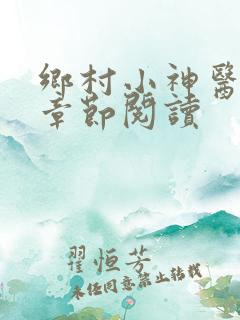 鄉村小神醫
章節閱讀
翟恒芳
未经同意禁止转载